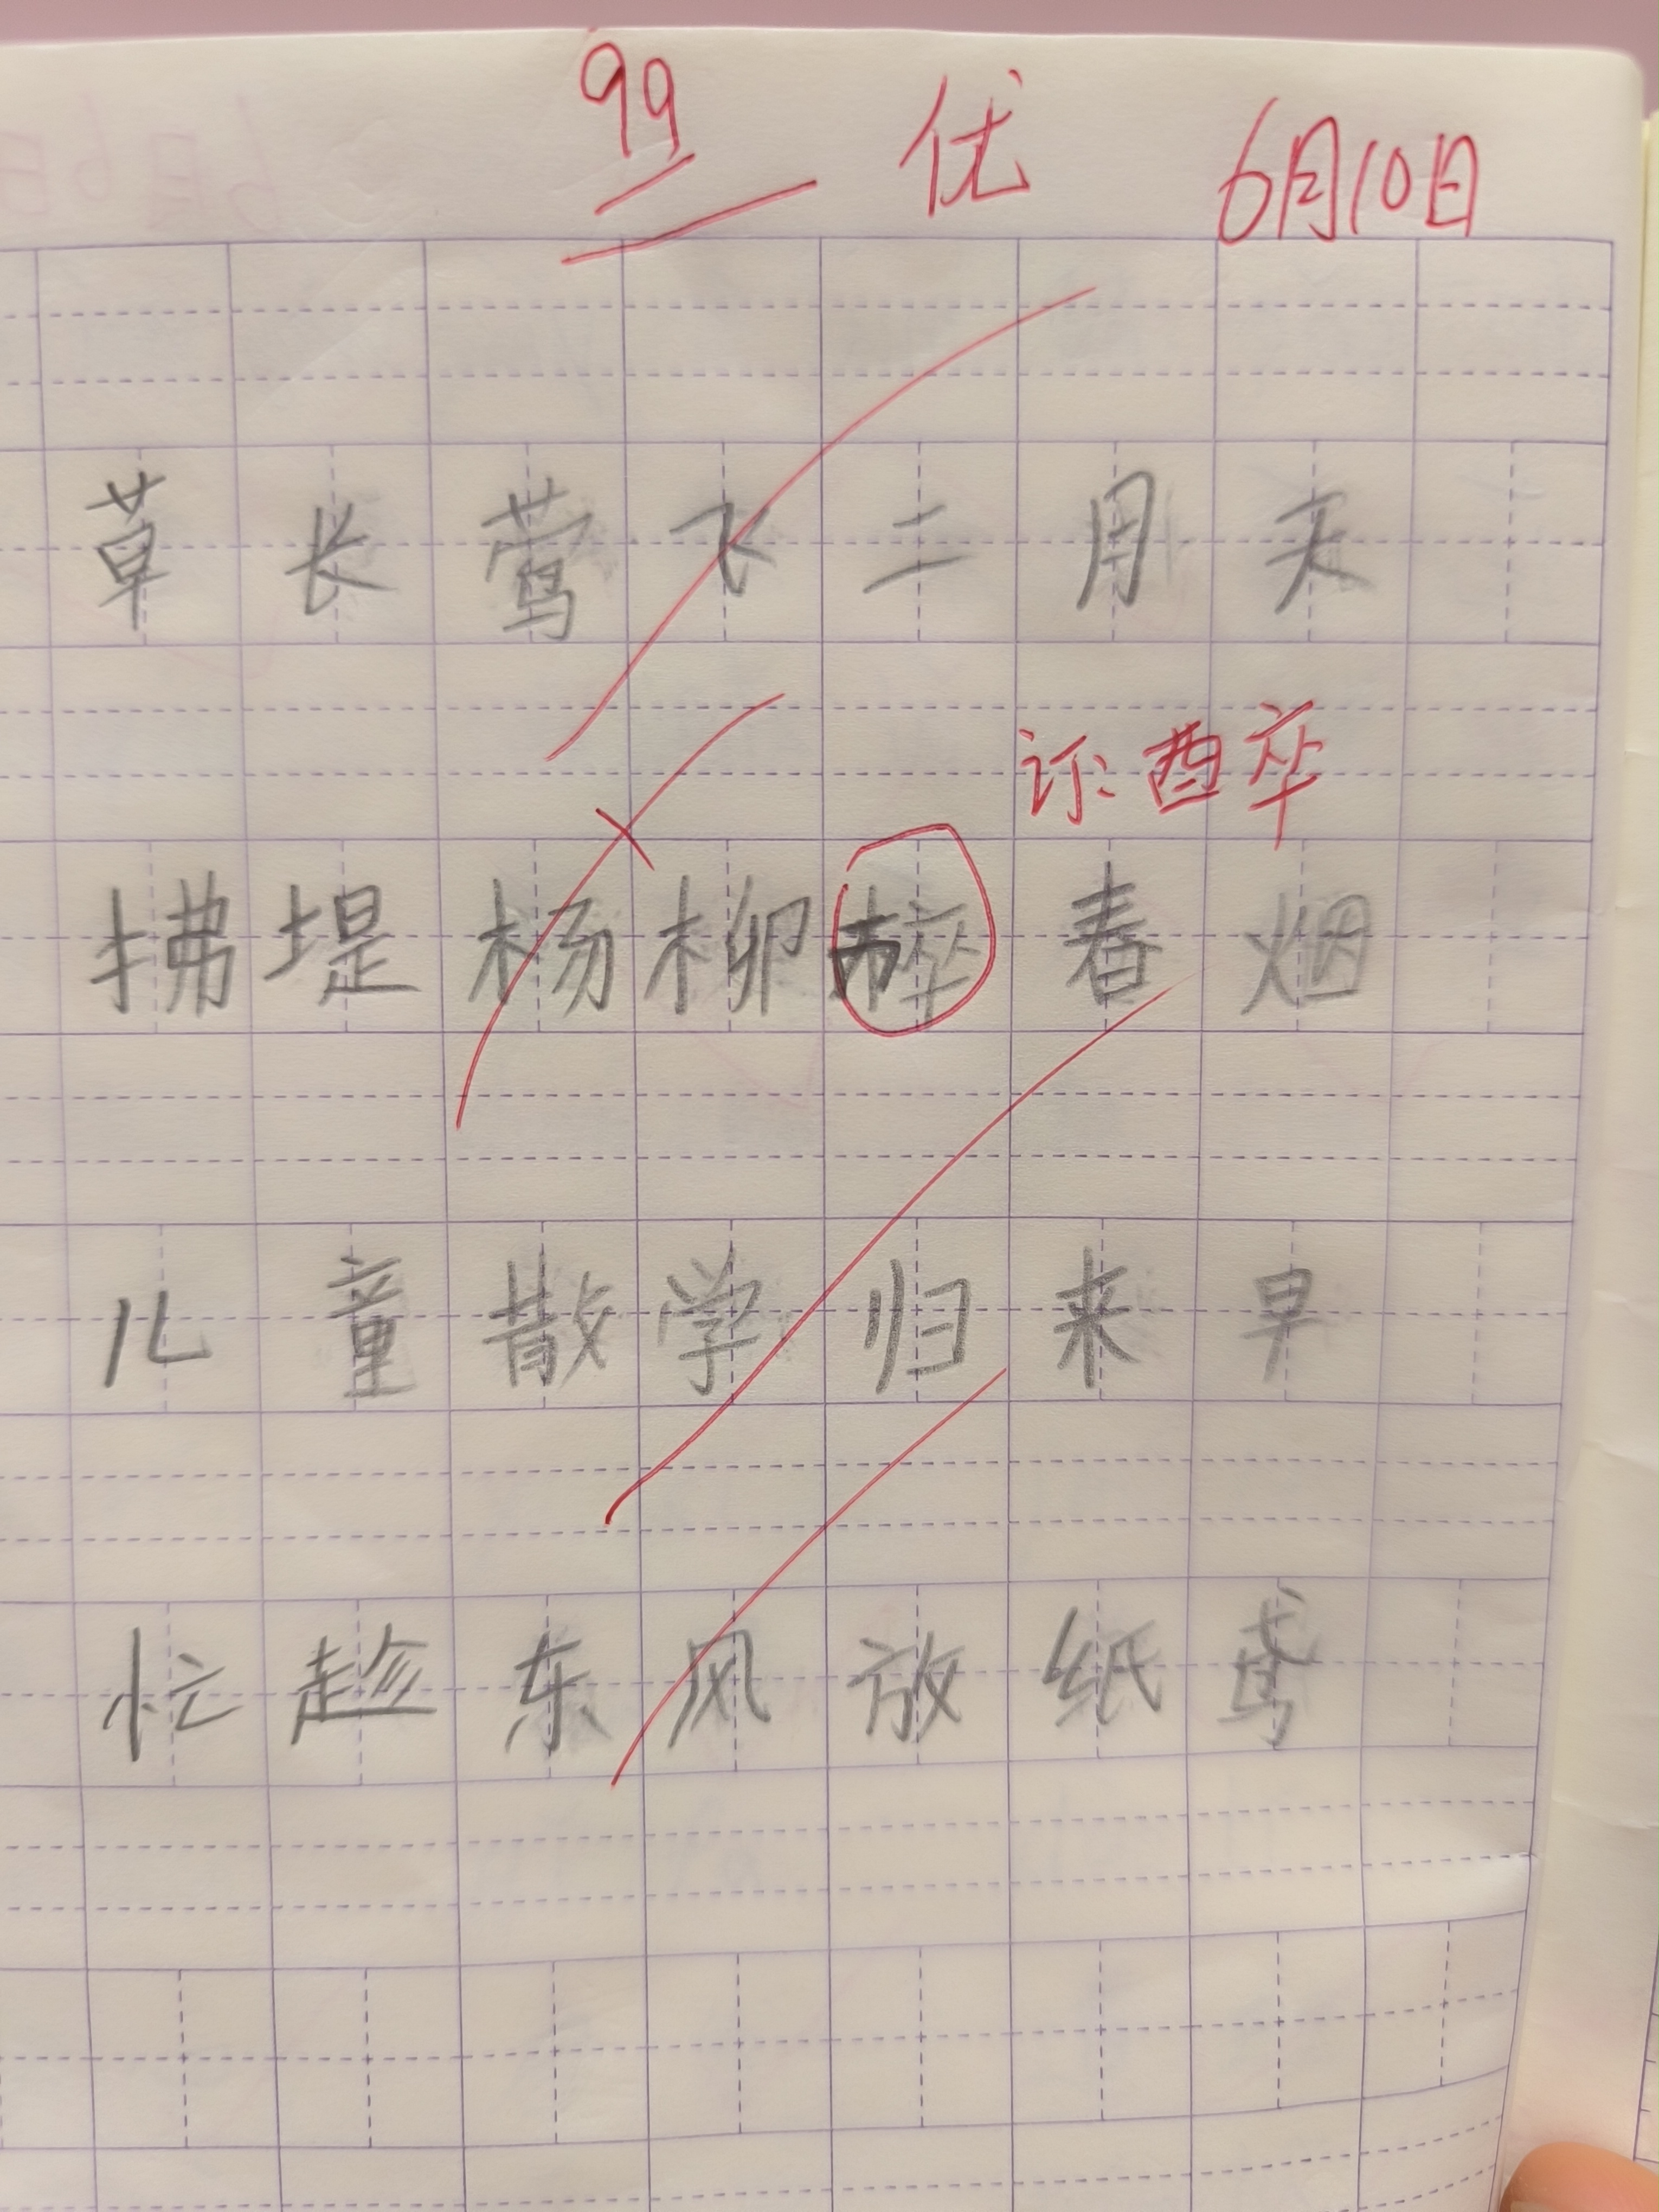 99 优 6月10日
草长莺飞二月天
订:酉卒
拂堤杨柳春烟
儿童散学归来早
忙趁东风放纸鸢